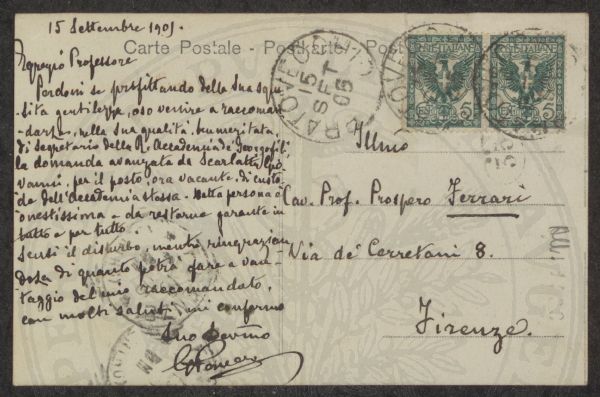 15 Settembre 1905.
Carte Postale - Postkarte - Post
Egregio Professore
Perdoni se profittando della Sua squi-
sita gentilezza, oso venire a raccoman-
darLe, nella Sua qualità, benemeritata,
di Segretario della R. Accademia de' Georgofili
la domanda avanzata da Scarlatti Gio-
vanni, per il posto, ora vacante, di custo-
de dell'Accademia stessa. Detta persona è
onestissima e da restarne garante in
tutto e per tutto.
Scusi il disturbo, mentre ringrazian-
doLa di quanto potrà fare a van-
taggio del mio raccomandato,
con molti saluti, mi confermo
Suo Devmo
PRATOVECCHIO
15 SET 05
POSTE ITALIANE
5
POSTE ITALIANE
5
Illmo
Cav. Prof. Prospero Ferrari
Via de' Cerretani 8.
Firenze.